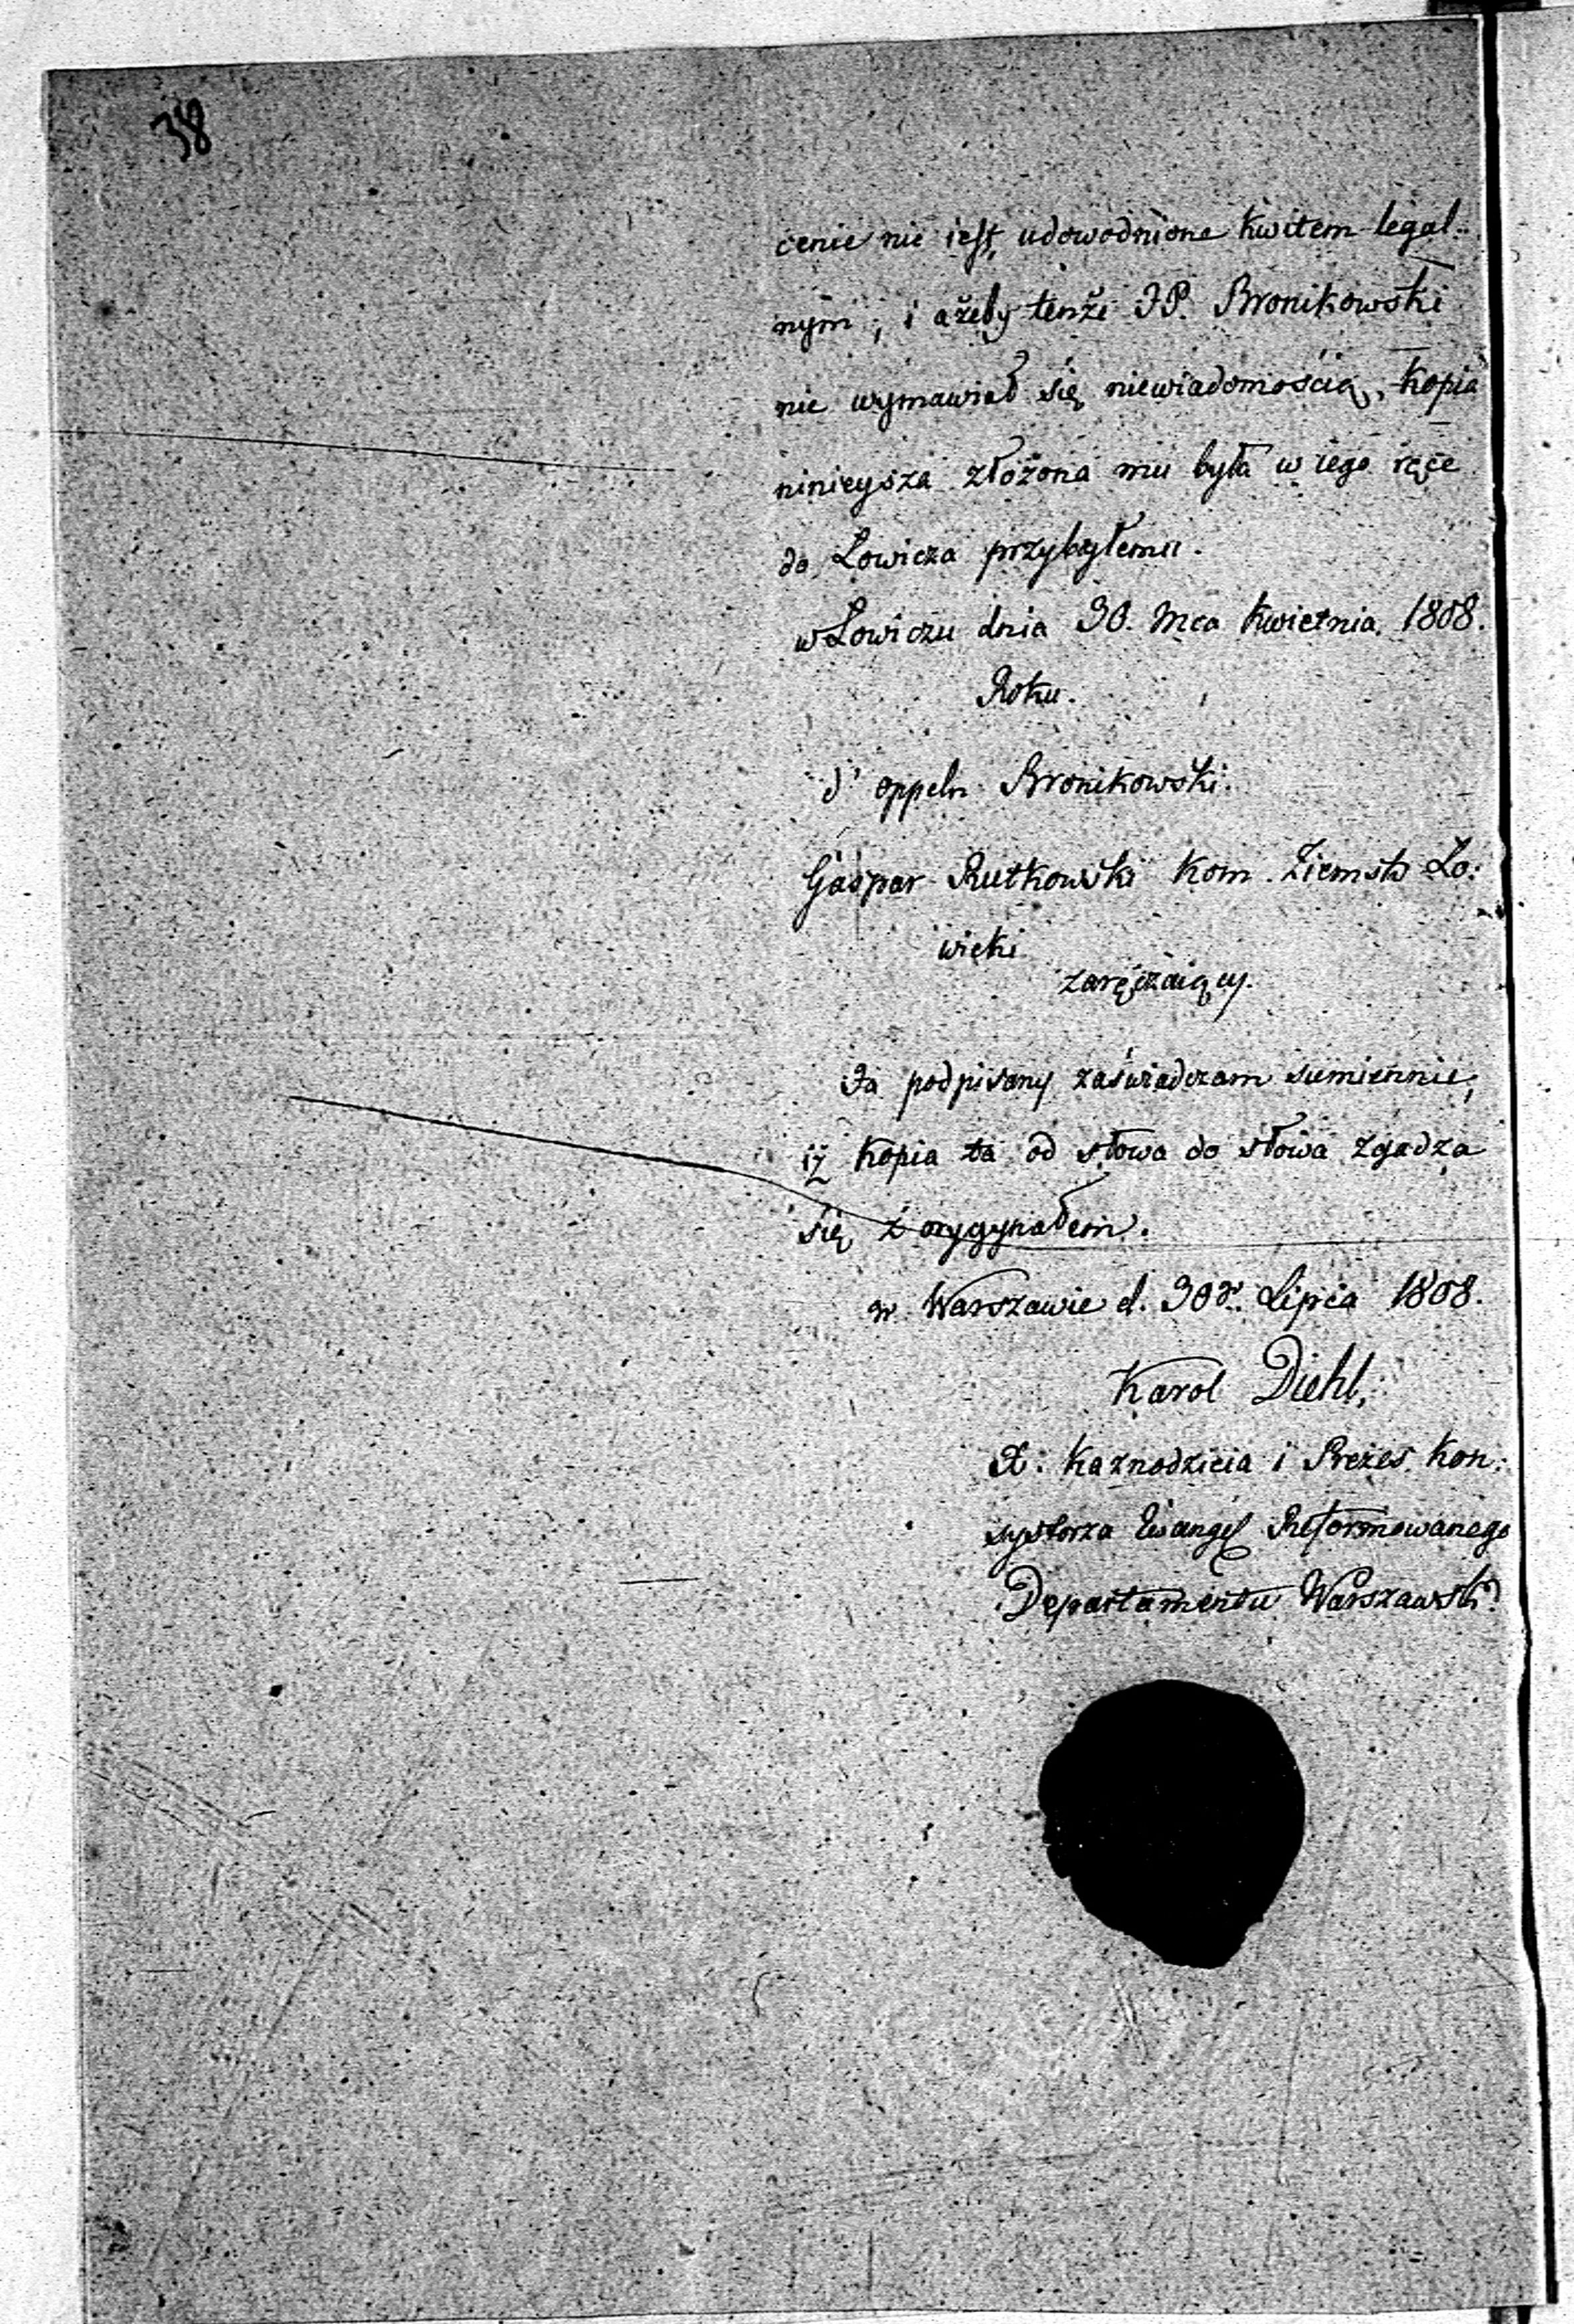 38
cenie nie iest udowodnione kwitem legal-
nym, i ażeby tenże JP. Bronikowski
nie wymawiał się niewiadomością, kopia
ninieysza złożona mu była w iego ręce
do Łowicza przybyłemu.
w Łowiczu dnia 30. Mca Kwietnia, 1808.
Roku.
d' oppeln Bronikowski.
Gaspar Rutkowski Kom. Ziemsk Ło:
wicki
zaręczaiący.
Ja podpisany zaświadczam sumiennie,
iż kopia ta od słowa do słowa zgadza
się z orygynałem.
w Warszawie d. 30 Lipca 1808.
Karol Diehl,
X. Kaznodzieia i Prezes Kon:
systorza Ewangel Reformowanego
Departamentu Warszawsk?